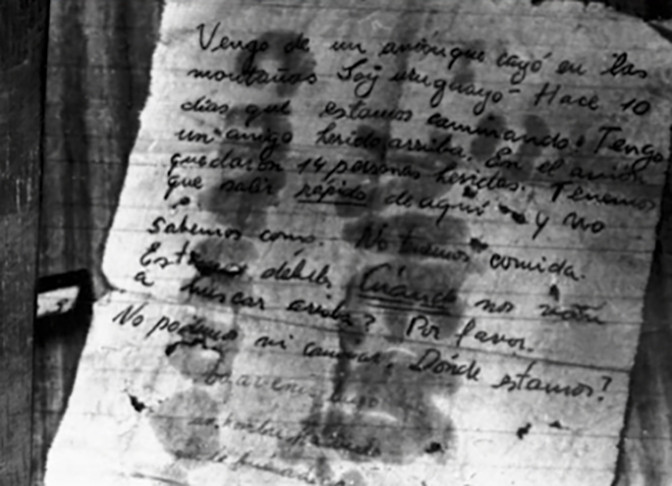 Vengo de un avión que cayó en las
montañas Soy uruguayo - Hace 10
días que estamos caminando. Tengo
un amigo herido arriba. En el avión
quedaron 14 personas heridas. Tenemos
que salir rápido de aquí y no
sabemos como. No tenemos comida.
Estamos débiles Cuándo nos van
a buscar arriba? Por favor.
No podemos ni caminar. Dónde estamos?